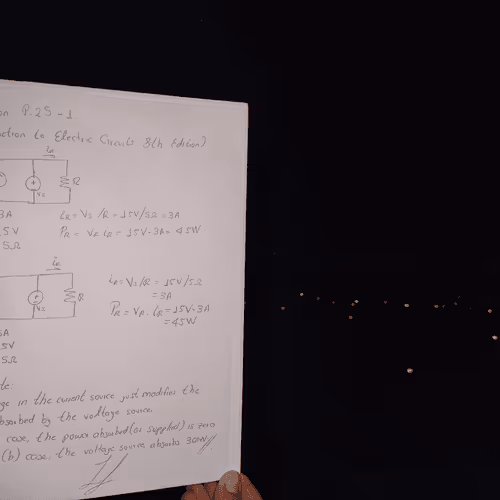 P.2S-1
to Electric Circuits 8th Edition)
iR
+
Vs
R
3A
iR = Vs/R = 15V/5Ω = 3A
5V
PR = VR·iR = 15V·3A = 45W
5Ω
iR
+
Vs
R
iR = Vs/R = 15V/5Ω
= 3A
PR = VR·iR = 15V·3A
= 45W
5V
5Ω
in the current source just modifies the
absorbed by the voltage source.
case, the power absorbed (or supplied) is zero
(b) case, the voltage source absorbs 30W